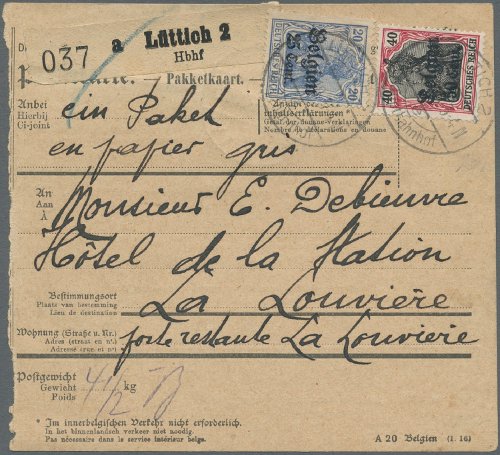 037 a Lüttich 2
Hbhf
Pakketkaart.
20 20 DEUTSCHES REICH Belgien 25 Cent.
40 40 DEUTSCHES REICH Belgien
Anbei
Hierbij
Ci-joint
ein Paket
en papier gris
inhaltserklärungen *
Getal der douane-verklaringen
Nombre de déclarations en douane
An
Aan
À
Monsieur E. Debieuvre
Hôtel de la Station
Bestimmungsort
Plaats van bestemming
Lieu de destination
La Louvière
Wohnung (Straße u. Nr.)
Adres (straat en n°.)
Adresse (rue et n°.)
poste restante La Louvière
Postgewicht
Gewicht
Poids
4 1/2 kg
* Im innerbelgischen Verkehr nicht erforderlich.
In het binnenlandsch verkeer niet noodig.
Pas nécessaire dans le service intérieur belge.
A 20 Belgien (1. 16)